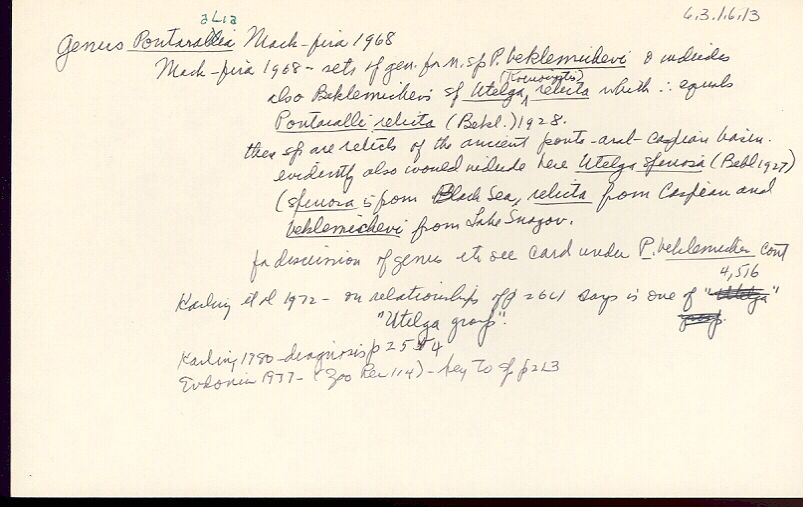 6.3.1.6.13
aLia
Genus Pontarallia Mack-fira 1968
Mack-fira 1968 - sets up gen. for n. sp P. beklemichevi & includes
(Koinocystis)
also Beklemichev's sp Utelga, relicta which ∴ equals
Pontaralli relicta (Bekl.) 1928.
these sp are relicts of the ancient ponto-aral-caspian basin.
evidently also would include here Utelga spinosa (Bekl 1927)
(spinosa is from Black Sea, relicta from Caspian and
beklemichevi from Lake Snagov.
for discussion of genus etc see card under P. beklemichevi cont
4,516
Karling et al 1972 - on relationships of p 264 says is one of "Utelga"
"Utelga group".
group.
Karling 1980 - diagnosis p 254
Evdonin 1977 - (Zoo Rec 114) - key to sp p 213